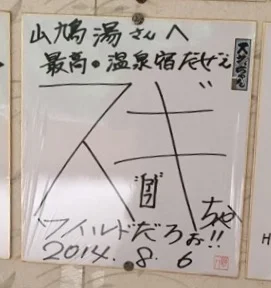 山鳩湯さんへ
最高・温泉宿だぜぇ
スギちゃん
ワイルドだろぉ!!
2014.8.6